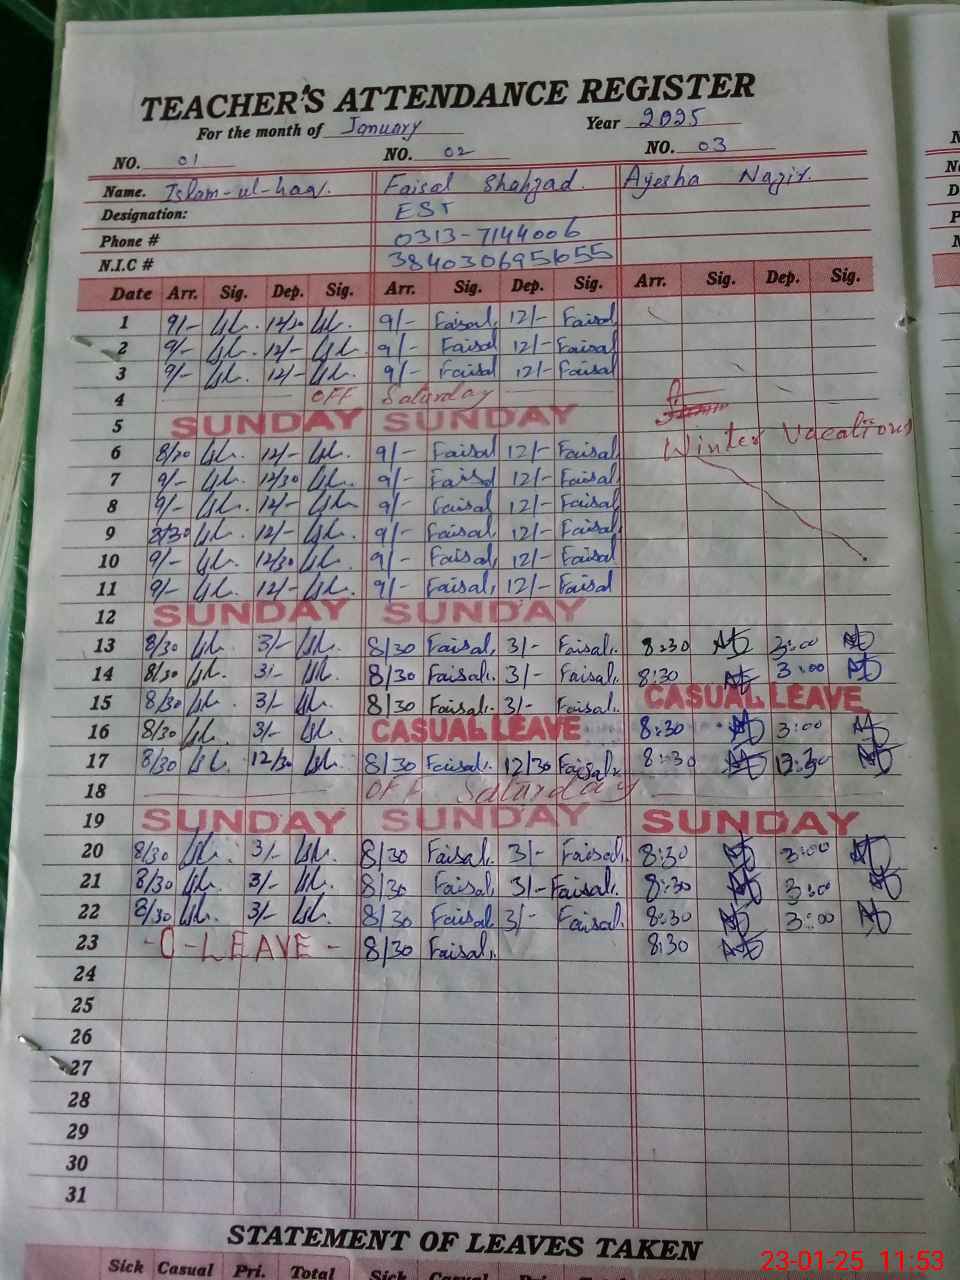 TEACHER'S ATTENDANCE REGISTER
For the month of January Year 2025
NO. 01 NO. 02 NO. 03
Name. Islam-ul-haq. Faisal Shahzad. Ayesha Nazir.
Designation: EST
Phone # 0313-7144006
N.I.C # 3840306951655
Date Arr. Sig. Dep. Sig. Arr. Sig. Dep. Sig. Arr. Sig. Dep. Sig.
1 9/- 12/30 9/- Faisal, 12/- Faisal
2 9/- 12/- 9/- Faisal 12/- Faisal
3 9/- 12/- 9/- Faisal 12/- Faisal
4 OFF Saturday
5 SUNDAY SUNDAY
Winter Vacations
6 8/30 12/- 9/- Faisal 12/- Faisal
7 9/- 12/30 9/- Faisal 12/- Faisal
8 9/- 12/- 9/- Faisal 12/- Faisal
9 8/30 12/- 9/- Faisal 12/- Faisal
10 9/- 12/30 9/- Faisal, 12/- Faisal
11 9/- 12/- 9/- Faisal, 12/- Faisal
12 SUNDAY SUNDAY
13 8/30 3/- 8/30 Faisal, 3/- Faisal. 8:30 3:00
14 8/30 3/- 8/30 Faisal, 3/- Faisal. 8:30 3:00
15 8/30 3/- 8/30 Faisal. 3/- Faisal. CASUAL LEAVE
16 8/30 3/- CASUAL LEAVE 8:30 3:00
17 8/30 12/30 8/30 Faisal. 12/30 Faisal. 8:30
18 OFF Saturday
19 SUNDAY SUNDAY SUNDAY
20 8/30 3/- 8/30 Faisal. 3/- Faisal. 8:30 3:00
21 8/30 3/- 8/30 Faisal, 3/- Faisal. 8:30 3:00
22 8/30 3/- 8/30 Faisal. 3/- Faisal. 8:30 3:00
23 - C - LEAVE - 8/30 Faisal. 8:30
24
25
26
27
28
29
30
31
STATEMENT OF LEAVES TAKEN
Sick Casual Pri. Total Sick Casual
23-01-25 11:53